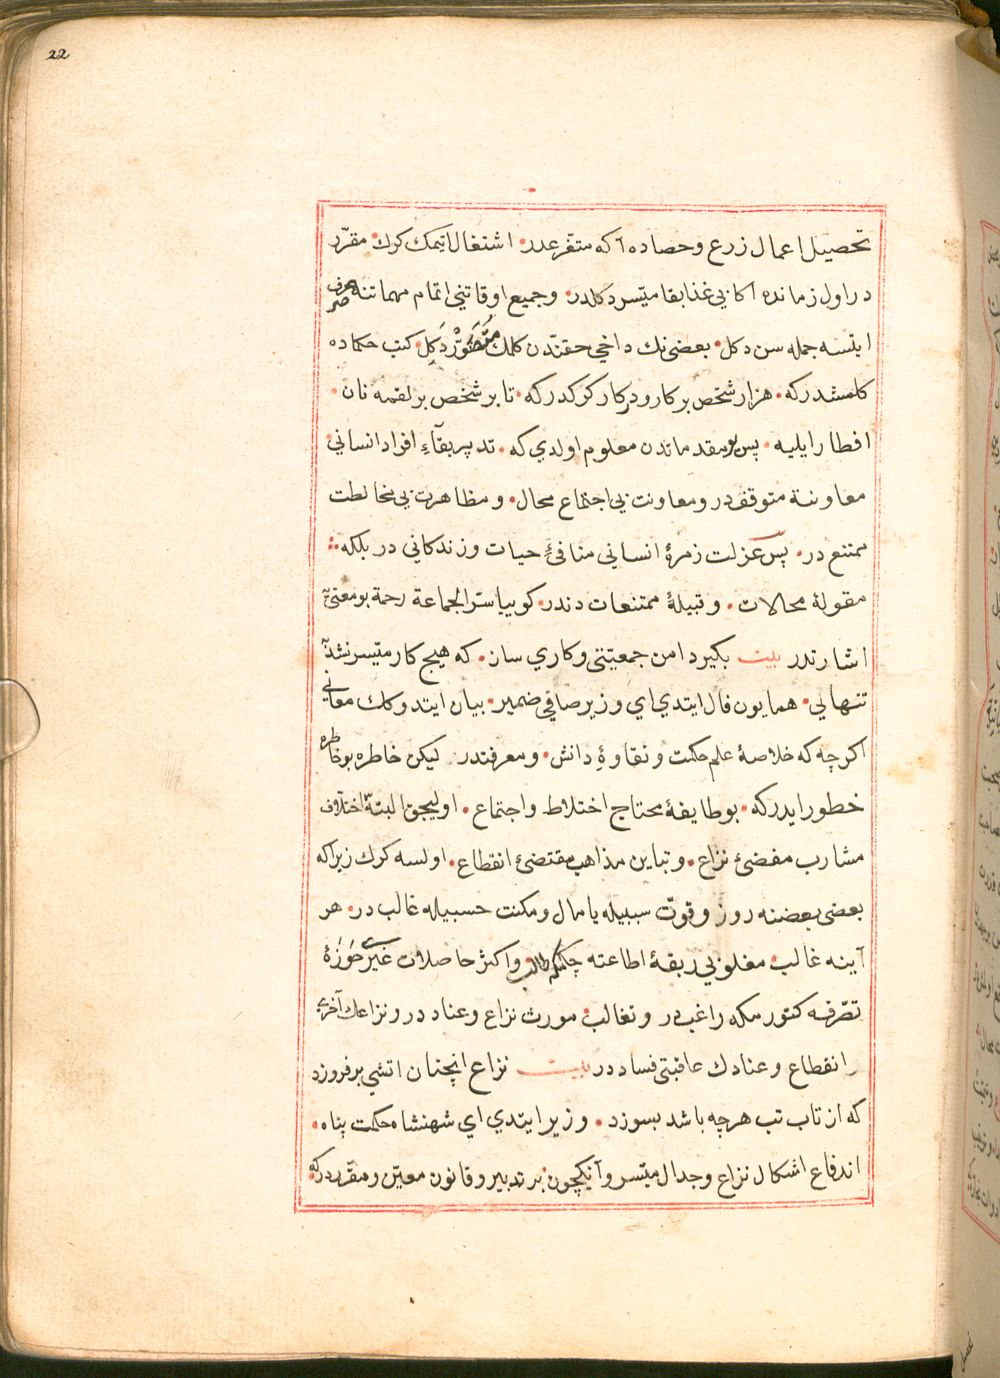 22
تحصیل اعمال زرع و حصاده اكه متفرعدر اشتغال ایتمك كرك مقرّر
در اول زمانده اكا بی غذا بقا میسّر دكلدر و جمیع اوقاتنی اتمام مهماتنه صرف
ایتسه جمله سن دكل بعضی نك داخی حقندن كلمك متصوّر دكل كتب حكماده
كلمشدركه هزار شخص بر كار و در كار كركدركه تا بر شخص بر لقمه نان
افطار ایلیه پس بو مقدماتدن معلوم اولدي كه تدبیر بقآءِ افراد انساني
معاونته متوقفدر و معاونت بی اجتماع محال و مظاهرت بی مخالطت
ممتنع در پس عزلت زمرۀ انساني منافیٔ حیات و زندكاني در بلكه
مقولۀ محالات و قبیلۀ ممتنعات دندر كوییا سرّ الجماعة رحمة بو معنی یه
اشارتدر بیت بكیر دامن جمعیّتی و كاري ساز كه هیچ كار میسّر نشد
تنهایي همایون فال ایتدي اي وزیر صافي ضمیر بیان ایتدوكك معاني
اكرچه كه خلاصۀ علم حكمت و نقاوۀ دانش و معرفتدر لیكن خاطره بو خاطره
خطور ایدركه بو طایفۀ محتاج اختلاط و اجتماع اولیجق البتة اختلاف
مشارب مفضیٔ نزاع و تباین مذاهب مقتضیٔ انقطاع اولسه كرك زیرا كه
بعضی بعضنه روز و قوّت سببیله یا مال و مكنت حسبیله غالب در هر
آینه غالب مغلوبی ربقۀ اطاعته چكمكه طالب و اكثر حاصلات غیري حوزۀ
تصّرفه كتورمكه راغب در و تغالب مورث نزاع و عناد در و نزاعك آخري
انقطاع و عنادك عاقبتی فساد در بیت نزاع انچنان اتشي بر فروزد
كه از تاب تب هرچه باشد بسوزد وزیر ایتدي اي شهنشاه حكمت پناه
اندفاع اشكال نزاع و جدال میسر و آنكیچون بر تدبیر و قانون معیّن و مقرّر دركه